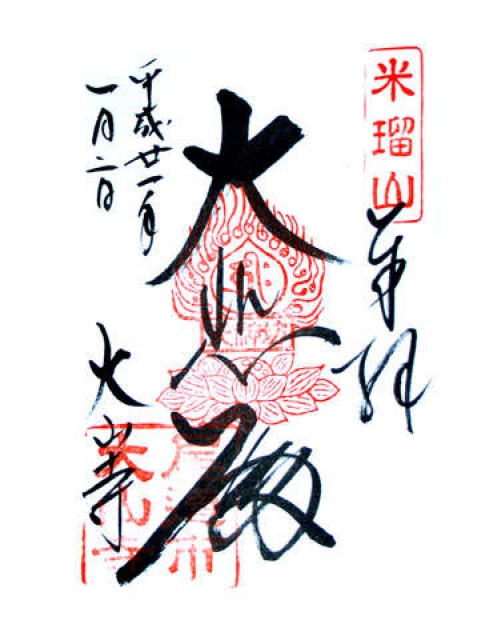 米瑠山
奉拝
大悲殿
平成廿一年
一月二日
大山寺